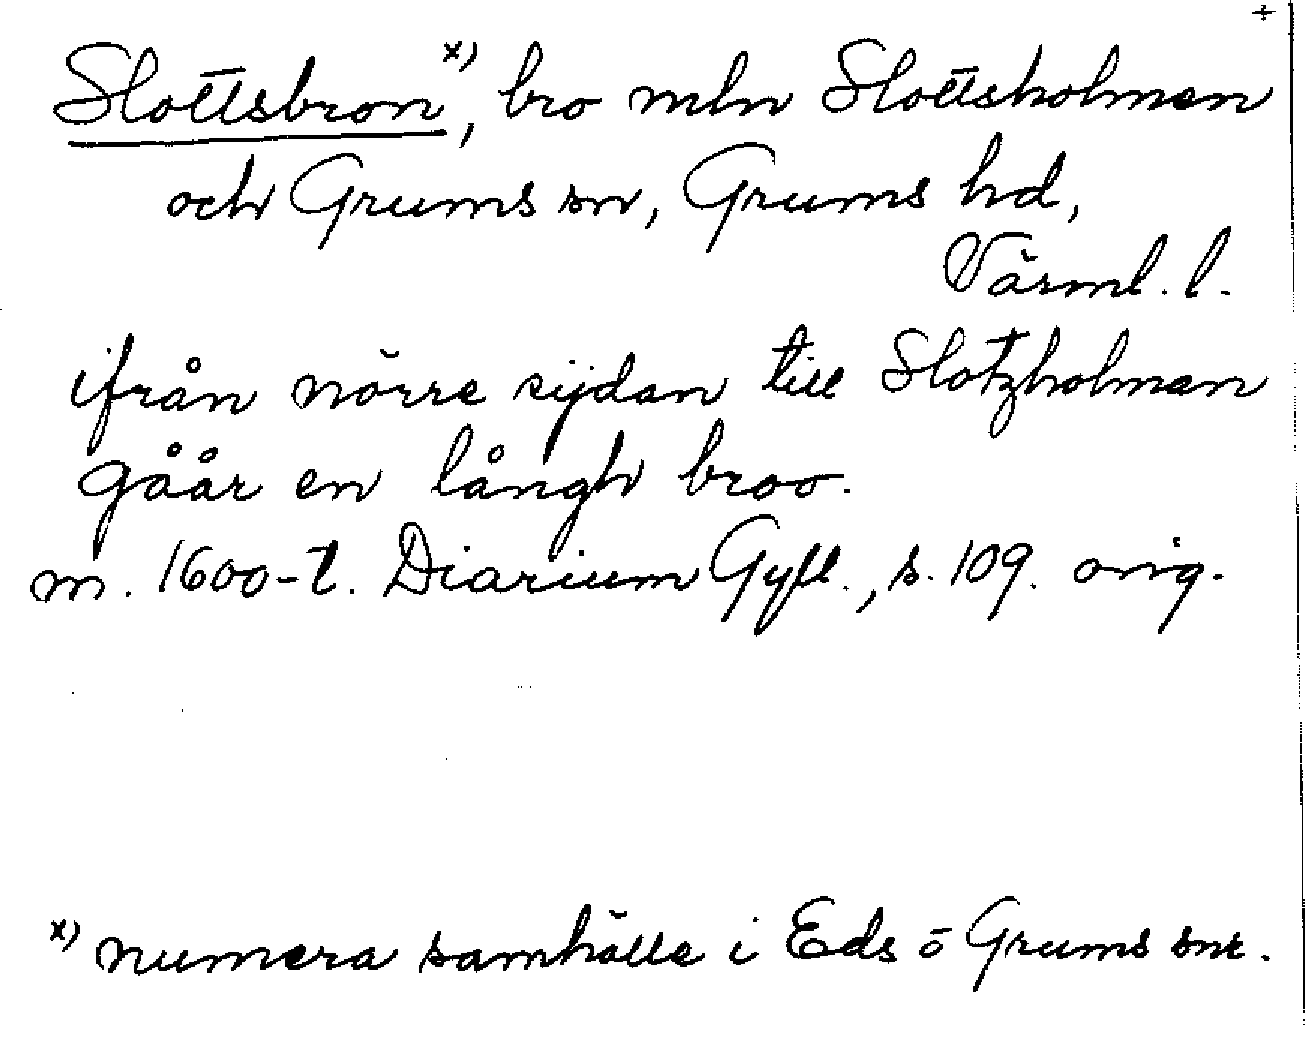 +
Slottsbron x), bro mln Slottsholmen
och Grums sn, Grums hd,
Värml. l.
ifrån nörre sijdan till Slotzholmen
gåår en långh broo.
m. 1600-t. Diarium Gyll., s. 109. orig.
x) numera samhälle i Eds o Grums snr.